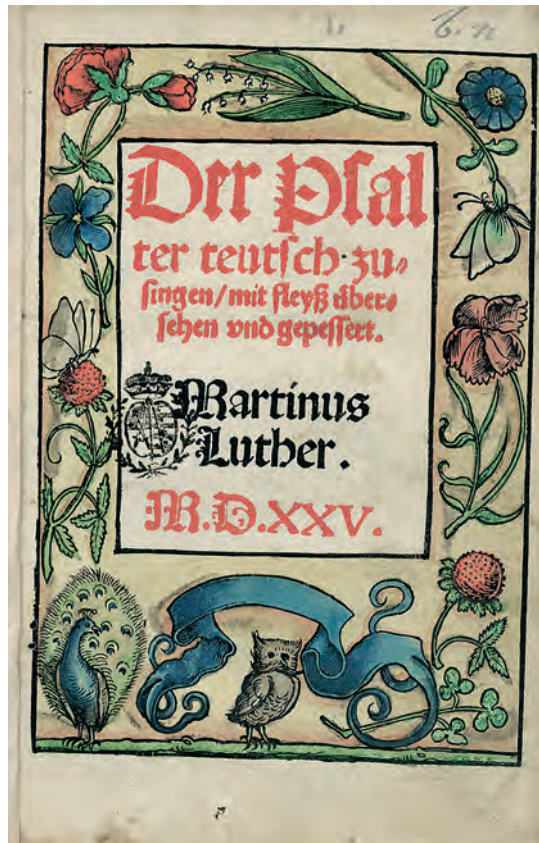 Der Pſal
ter teutſch zu⸗
ſingen/mit fleyß uͤber⸗
ſehen vnd gepeſſert.
Martinus
Luther.
M.D.XXV.